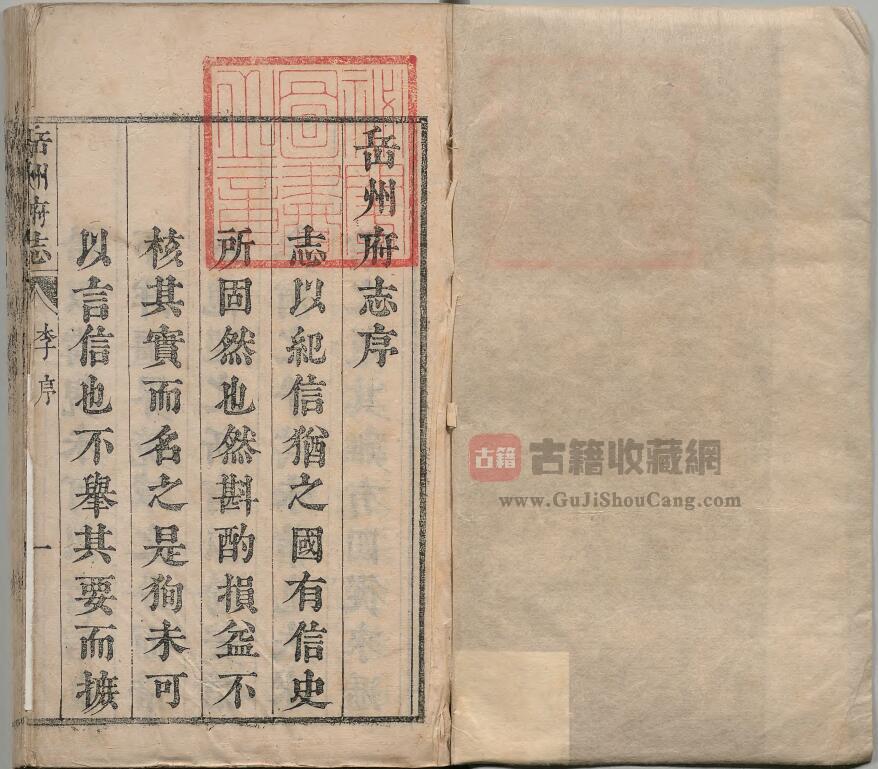 岳州府志序
志以紀信猶之國有信史
所固然也然斟酌損益不
核其實而名之是狥未可
以言信也不舉其要而摭
岳州府志
李序
一
古籍
古籍收藏網
www.GuJiShouCang.com